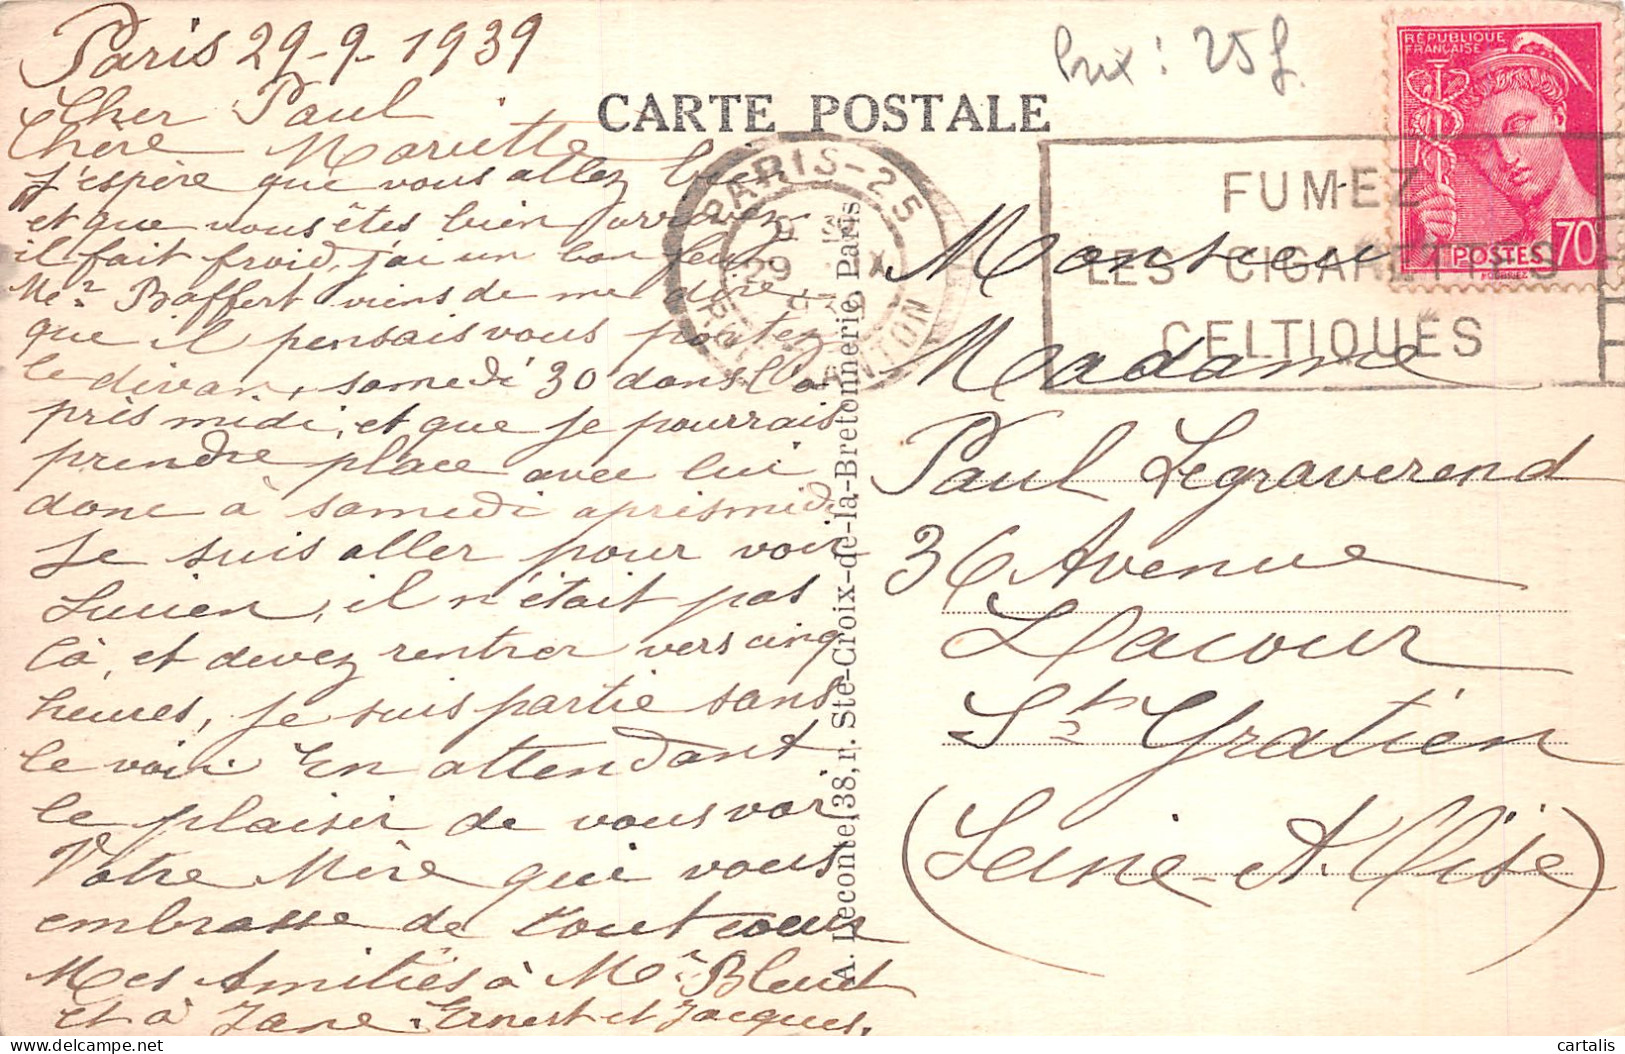 Paris 29-9-1939
Cher Paul
Chère Mariette
J'espère que vous allez bien
et que vous êtes bien arrivez
il fait froid, j'ai un bon feu
Mr Baffert viens de me dire
que il pensais vous portez
le divan, samedi 30 dans l'a
près midi, et que je pourrais
prendre place avec lui
donc à samedi aprismidi
Je suis aller pour voir
Lucien, il n'était pas
là, et devez rentrer vers cinq
heures, je suis partie sans
le voir. En attendant
le plaisir de vous voir
Votre Mère qui vous
embrasse de tout coeur
Mes Amitiés à Mr Bluet
et à Jane. Ernest et Jacques.
Prix : 25 f.
CARTE POSTALE
RÉPUBLIQUE
FRANÇAISE
POSTES
70c
PARIS-25
29
DANTON
FUMEZ
LES CIGARETTES
CELTIQUES
A. Leconte, 38, r. Ste-Croix-de-la-Bretonnerie, Paris
Monsieur
Madame
Paul Legraverend
36 Avenue
Lacour
St Gratien
(Seine-et-Oise)
cartalis
delcampe.net